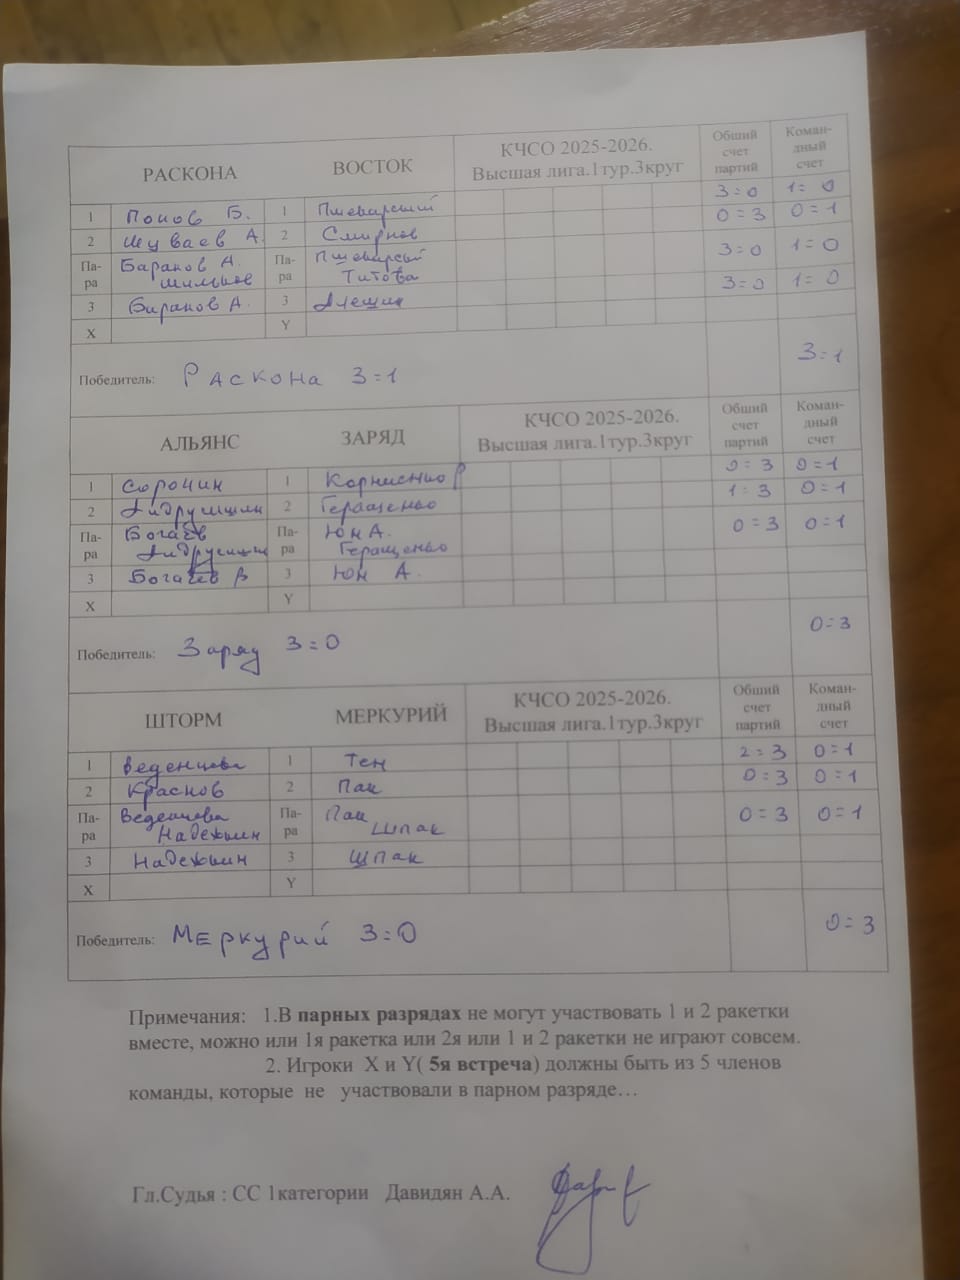 РАСКОНА ВОСТОК КЧСО 2025-2026. Высшая лига.1тур.3круг Общий счет партий Коман-дный счет
1 Попов Б. 1 Пшеварский 3=0 1=0
2 Шуваев А. 2 Смирнов 0=3 0=1
Па-ра Баранов А. Па-ра Пшеварский 3=0 1=0
Титова
3 Баранов А. 3 Алешин 3=0 1=0
X Y
Победитель: РАСКОНА 3=1 3=1
АЛЬЯНС ЗАРЯД КЧСО 2025-2026. Высшая лига.1тур.3круг Общий счет партий Коман-дный счет
1 Сорочин 1 Корниенко Р 0=3 0=1
2 Андрушшин 2 Геращенко 1=3 0=1
Па-ра Богачев Па-ра Юн А. 0=3 0=1
Геращенко
3 Богачев В 3 Юн А.
X Y
Победитель: Заряд 3=0 0=3
ШТОРМ МЕРКУРИЙ КЧСО 2025-2026. Высшая лига.1тур.3круг Общий счет партий Коман-дный счет
1 Веденцева 1 Тен 2=3 0=1
2 Краснов 2 Пак 0=3 0=1
Па-ра Веденцева Па-ра Пак 0=3 0=1
Надежкин Шпак
3 Надежкин 3 Шпак
X Y
Победитель: МЕРКУРИЙ 3=0 0=3
Примечания: 1.В парных разрядах не могут участвовать 1 и 2 ракетки
вместе, можно или 1я ракетка или 2я или 1 и 2 ракетки не играют совсем.
2. Игроки X и Y( 5я встреча) должны быть из 5 членов
команды, которые не участвовали в парном разряде…
Гл.Судья : СС 1категории Давидян А.А.